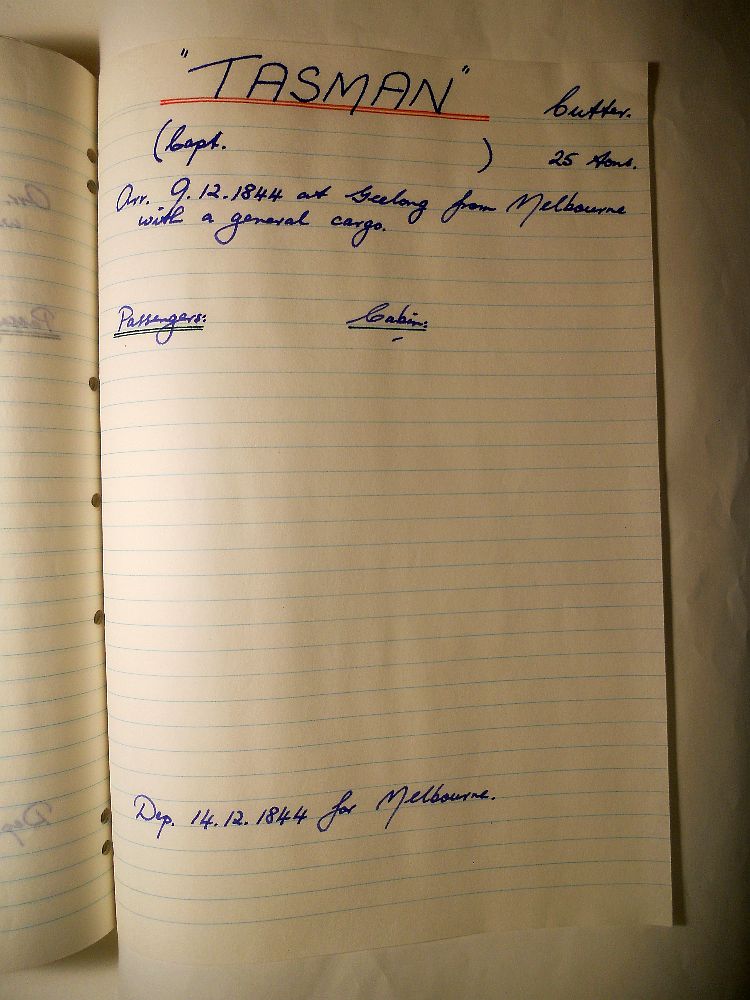 "TASMAN"
Cutter.
(Capt. )
25 tons.
Arr. 9.12.1844 at Geelong from Melbourne
with a general cargo.
Passengers: Cabin:
-
Dep. 14.12.1844 for Melbourne.